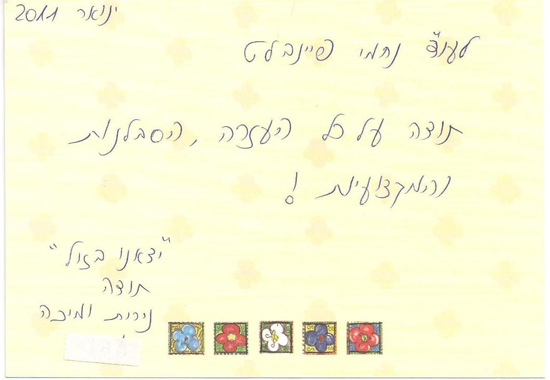 ינואר 2011
לעו"ד נחמי פיינבלט
תודה על כל העזרה, הסבלנות
והמקצועיות!
"יצאנו בזול"
תודה
נירית ומיכה